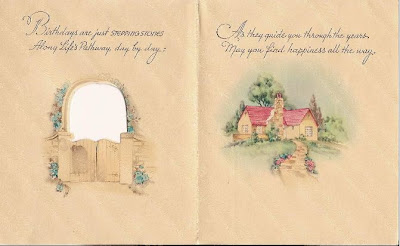 Birthdays are just STEPPING STONES
Along Life's Pathway day by day,:
As they guide you through the years
May you find happiness all the way.